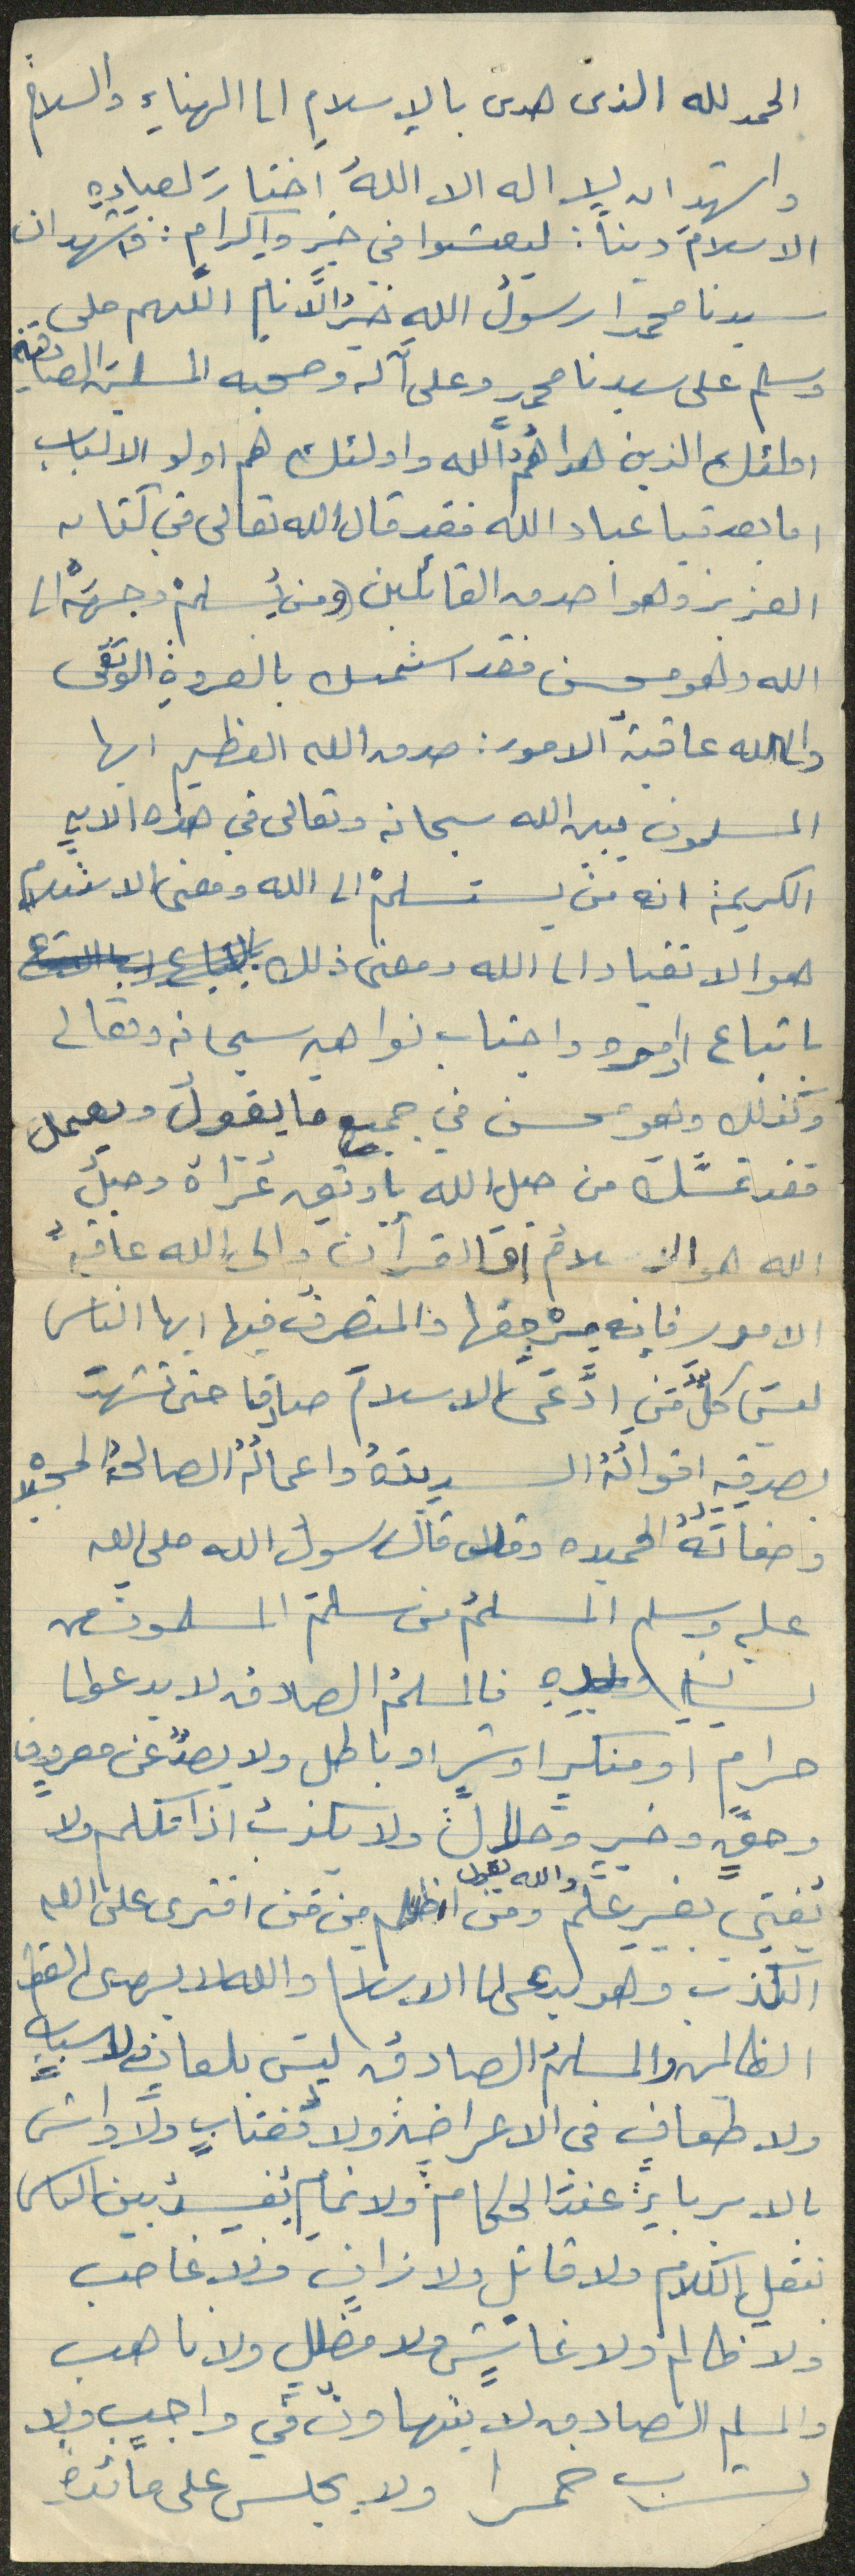 الحمد لله الذى هدى بالإسلام الى الهناء والسلام
واشهد ان لا اله الا اللهُ اختار لعباده
الاسلام ديناً: ليعيشوا في خير واكرام: واشهد ان
سيدنا محمدا رسول الله خير الأنام اللهم صلى
وسلم على سيدنا محمدٍ وعلى آله وصحبه المسلمين الصادقين
اولئك الذين هداهُمُ الله واولئك هم اولو الالباب
اما بعد فيا عباد الله فقد قال الله تعالى في كتابه
العزيز وهو اصدق القائلين (ومن يُسلمْ وجهَهُ الى
الله وهو محسن فقد استمسك بالعروةِ الوثقى
والى الله عاقبةُ الامور: صدق الله العظيم ايها
المسلمون يبين الله سبحانه وتعالى في هذه الاية
الكريمة انه مَنْ يستسلمْ الى الله ومعنى الاستسلام
هو الانقياد الى الله ومعنى ذلك
باتباع اوامره واجتناب نواهيه سبحانه وتعالى
وكذلك وهو محسن في جميع ما يقول ويعمل
فقد تمسَّك من حبل الله بأوثق عُرَاهُ وحبلُ
الله هو الاسلامُ القرآن والى الله عاقبةُ
الامور فإنه مرْجِعُها والمتصرفُ فيها ايها الناس
ليس كلُّ مَنِ ادَّعَى الاسلامَ صادقا حتى تشهدَ
بصدقِهِ اقوالُهُ السديدةُ واعمالُهُ الصالحةُ
وصفاتُهُ الحميده وقد قال رسول الله صلى الله
عليه وسلم المسلمُ من سلمَ المسلمون من
لسانِهِ ويده فالمسلمُ الصادق لا يدعو الى
حرامٍ او منكرٍ او شرٍ او باطل ولا يصدُّ عن معروفٍ
وحقٍّ وخيرٍ وحلالٍ ولا يكذبُ اذا تكلم ولا
يُفتي بغيرِ علمٍ والله يقول ومن اظلم مِن مَن افترى على الله
الكذب وهو يدعى الى الاسلام والله لا يهدى القوم
الظالمين والمسلمُ الصادقُ ليسَ بلعانٍ ولا سبابٍ
ولا طعانٍ في الاعراضِ ولا مُغتابٍ ولا واشٍ
بالابرياءِ عندَ الحكامِ ولا نمامٍ يُفسدُ بين الناس
بنقلِ الكلامِ ولا قاتلٍ ولا زانٍ ولا غاصب
ولا ظالم ولا غاشٍ ولا مضللٍ ولا ناهب
والمسلم الصادق لا يتهاونُ في واجبٍ ولا
يشرب خمرا ولا يجلس على مائدةٍ